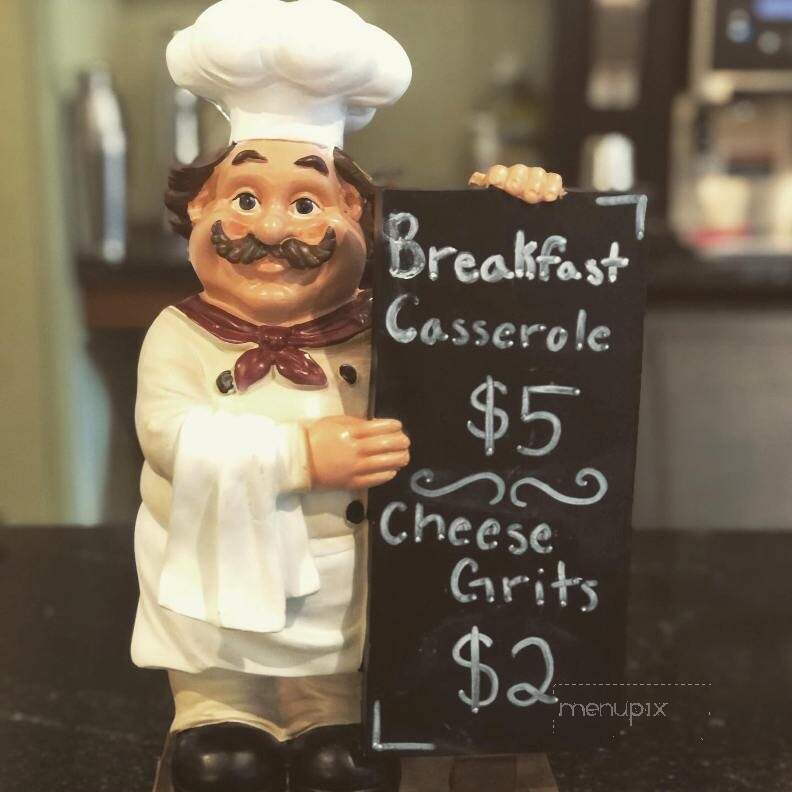 Breakfast
Casserole
$5
Cheese
Grits
$2
menupix